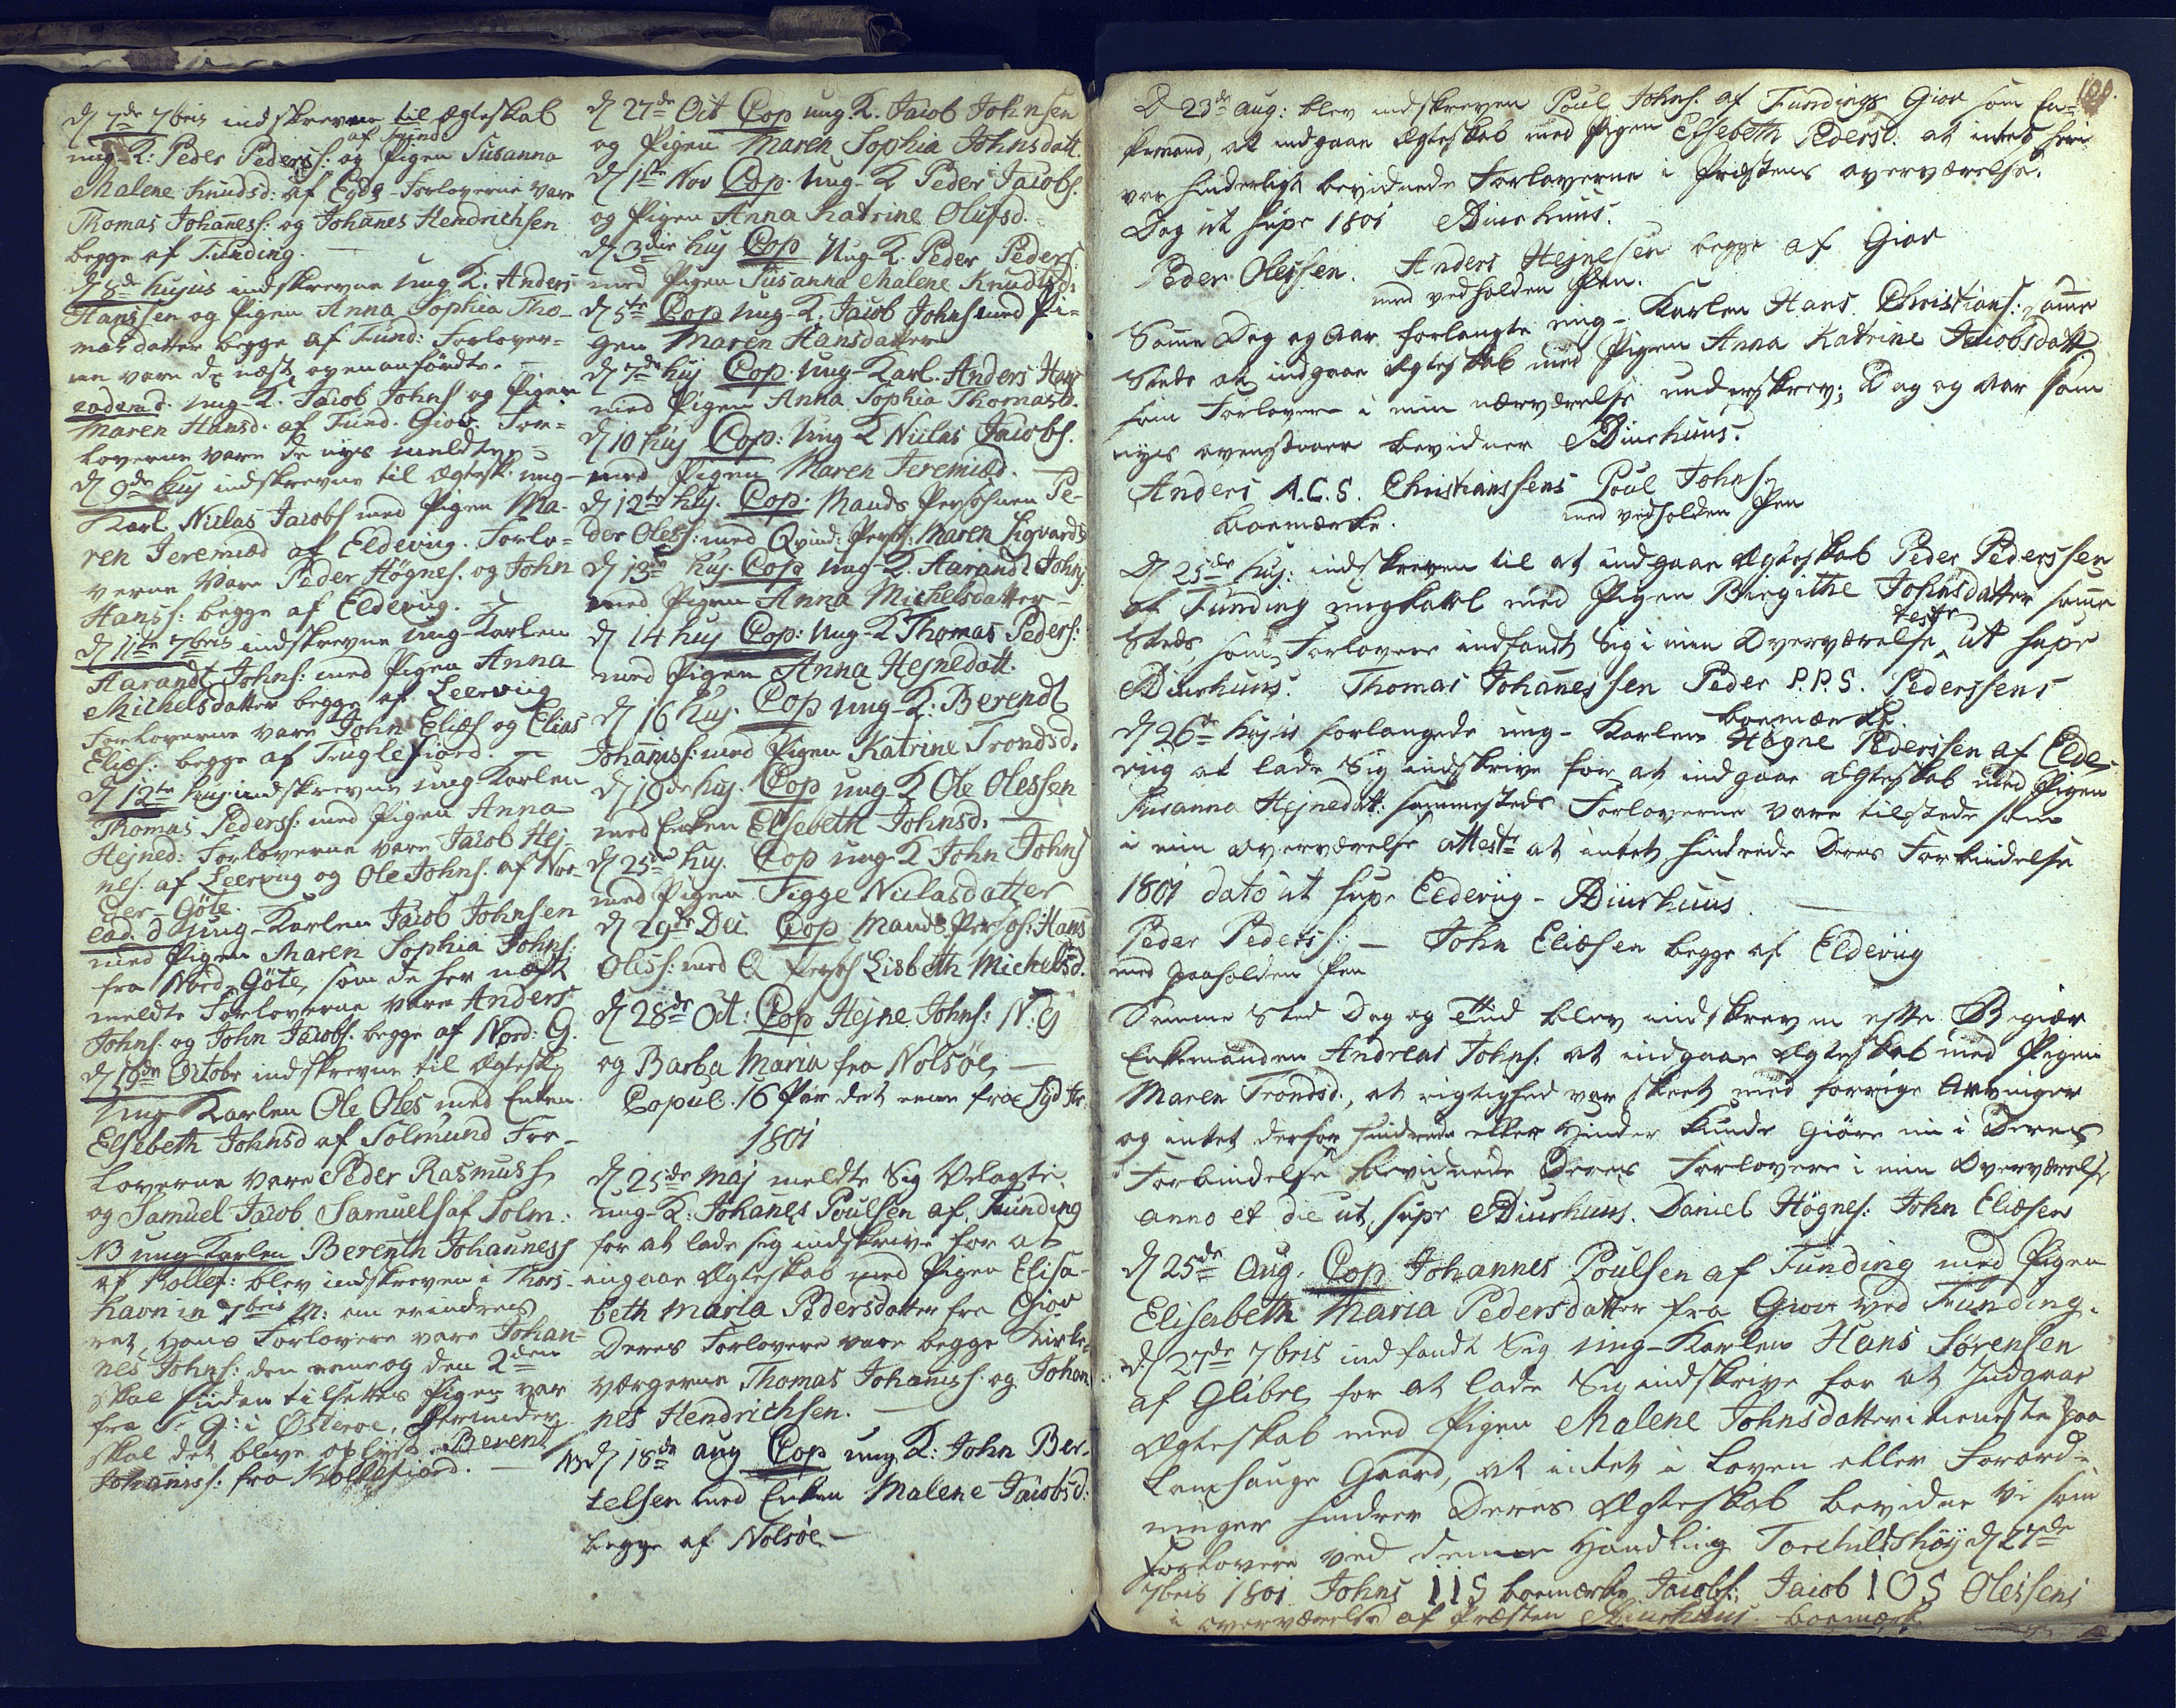 d 7de 7bris indskrevne til Ægteskab
af Fund:
ung-K: Peder Peders: og Pigen Susanna
Malene Knudsd: af Eyde Forloverne vare
Thomas Johannes: og Johanes Hendrichsen
begge af Funding.
d 8de hujus indskrevne ung K: Anders
Hanssen og Pigen Anna Sophia Tho-
mas datter begge af Fund: Forlover-
ne vare de næst ovenanførdte.
eadem d. ung-K. Jacob Johns og Pigen
Maren Hansd. af Fund. Giov. For-
loverne vare de nys meldte
d 9de huj indskrevne til Ægtesk: ung-
Karl Niclas Jacobs med Pigen Ma-
ren Jeremiæd af Eldevig. Forlo-
verne vare Peder Högnes. og John
Hanss: begge af Eldevig.
d 11te 7bris indskrevne ung-Karlen
Aarandt Johns: med Pigen Anna
Michelsdatter begge af Leervig
Forloverne vare John Eliæs og Elias
Eliæs: begge af Fuglefiord
d 12te huj indskrevne ung Karlen
Thomas Peders: med Pigen Anna
Hejned: Forloverne vare Jacob Hej-
nes. af Leervig og Ole Johns. af Nor-
der-Göte.
ead. d ung-Karlen Jacob Johnsen
med Pigen Maren Sophia Johns:
fra Nord-Göte, som de her næst
meldte Forloverne vare Anders
Johns: og John Jacobs. begge af Nord: G.
d 19de Octobr indskrevne til Ægtesk
Ung Karlen Ole Oles med Enken
Elsebeth Johnsd af Solmund For-
loverne vare Peder Rasmuss
og Samuel Jacob Samuels af Solm.
NB ung Karlen Berenth Johanness
af Kollef: blev indskreven i Thors-
havn in 7bris M: om erindres
ret, Hans Forlovere vare Johan-
nes Johns: den eene og den 2den
skal siden tilsettes Pigen var
fra S: G: i Østeroe,
skal det blive oplyst Berent
Johanness: fra Kollefiord.
d 27de Oct Cop ung. K. Jacob Johnsen
og Pigen Maren Sophia Johnsdatt.
d 1ste Nov Cop. Ung-K Peder Jacobs.
og Pigen Anna Katrine Olufsd.
d 3die huj Cop Ung-K. Peder Peders
med Pigen Susanna Malene Knudsd:
d 5te Cop ung-K. Jacob Johns med Pi-
gen Maren Hansdatter
d 7de huj Cop. ung-Karl. Anders Hans
med Pigen Anna Sophia Thomasd.
d 10 huj Cop: Ung K Niclas Jacobs.
med Pigen Maren Jeremiæd.
d 12te huj. Cop: Mands Persohnen Pe-
der Oless: med Qvind: Pers: Maren Sigvards
d 13de huj. Cop Ung-K. Aarandt Johns
med Pigen Anna Michelsdatter
d 14 huj Cop: Ung-K Thomas Peders:
med Pigen Anna Hejnedatt.
d 16 huj. Cop ung-K: Berendt
Johaness: med Pigen Katrine Trondsd.
d 19de huj. Cop ung-K Ole Olessen
med Enken Elsebeth Johnsd.
d 25de huj. Cop ung K John Johns
med Pigen Sigge Niclasdatter
d 29de Dec Cop Mands Persoh: Hans
Oless: med Q Persoh Lisbeth Michelsd.
d 28de Oct: Cop Hejne Johns: N: G
og Barba Maria fra Nolsöe,
Copul: 16 Par det eene fra Syd Str.
1801
d 25de Maj meldte Sig Velagte
ung-K: Johanes Poulsen af Funding
for at lade sig indskrive for at
ingaae Ægteskab med Pigen Elisa-
beth Maria Pedersdatter fra Giov
Deres Forlovere vare begge Kirke-
værgerne Thomas Johaness: og Johan-
nes Hendrichsen.
NB d 18de aug Cop ung K: John Ber-
telsen med Enken Malene Jacobsd:
begge af Nolsöe
100.
D 23de Aug: blev indskreven Poul Johns. af Fundings Giov som En-
kemand, at indgaae Ægteskab med Pigen Elsebeth Pedersd. at intet her
var hinderligt bevidnede Forloverne i Præstens overværelse.
Dag ut supr 1801 ADiurhuus.
Peder Olessen. Anders Hejnesen begge af Giov
med vedholden Pen.
Same Dag og Aar forlangte ung- Karlen Hans Christians: same
Steds at indgaae Ægteskab med Pigen Anna Katrine Jacobsdatt
som Forlovere i min nærværelse underskrev; Dag og Aar som
nys ovenstaaer bevidner ADiurhuus.
Anders A.C.S. Christianssens Poul Johns.
boemærke. med vedholden Pen
D 25de huj: indskreven til at indgaae Ægteskab Peder Pederssen
af Funding ungkarl med Pigen Birgithe Johnsdatter same
Steds som Forlovere indfandt Sig i min Overværelse teste ut supr
ADiurhuus. Thomas Johannessen Peder P.P.S. Pederssens
boemærke.
d 26de hujus forlangede ung- Karlen Högne Pederssen af Elde-
vig at lade Sig indskrive for at indgaae Ægteskab med Pigen
Susanna Hejnedatt: sammesteds Forloverne vare tilstede som
i min overværelse attestr at intet hindrede Deres Forbindelse
1801 dato ut supr Eldevig - ADiurhuus
Peder Peders: — John Eliæsen begge af Eldevig
med paaholden Pen
Samme Sted Dag og Tiid blev indskreven efter Begiær
Enkemanden Andreas Johns. at indgaae Ægteskab med Pigen
Maren Trondsd., at rigtighed var skeet med forrige Arvinger
og intet derfor hindrede eller Hinder kunde giöre nu i Deres
Forbindelse bevidnede Deres Forlovere i min Overværelse
anno et die ut supr ADiurhuus. Daniel Högnes: John Eliæsen
d 25de Aug. Cop Johannes Poulsen af Funding med Pigen
Elisabeth Maria Pedersdatter fra Giov ved Funding.
d 27de 7bris indfandt Sig ung-Karlen Hans Sörensen
af Glibre for at lade Sig indskrive for at Indgaae
Ægteskab med Pigen Malene Johnsdatter i tieneste paa
Lamhauge Gaard, at intet i Loven eller Forord-
ninger hindrer Deres Ægteskab bevidne Vi som
Forlovere ved denne Handling Torchildshöj d 27de
7bris 1801 Johns IIS boemærke Jacobs: Jacob IOS Olessens
i overværelse af Præsten ADiurhuus. boemærke